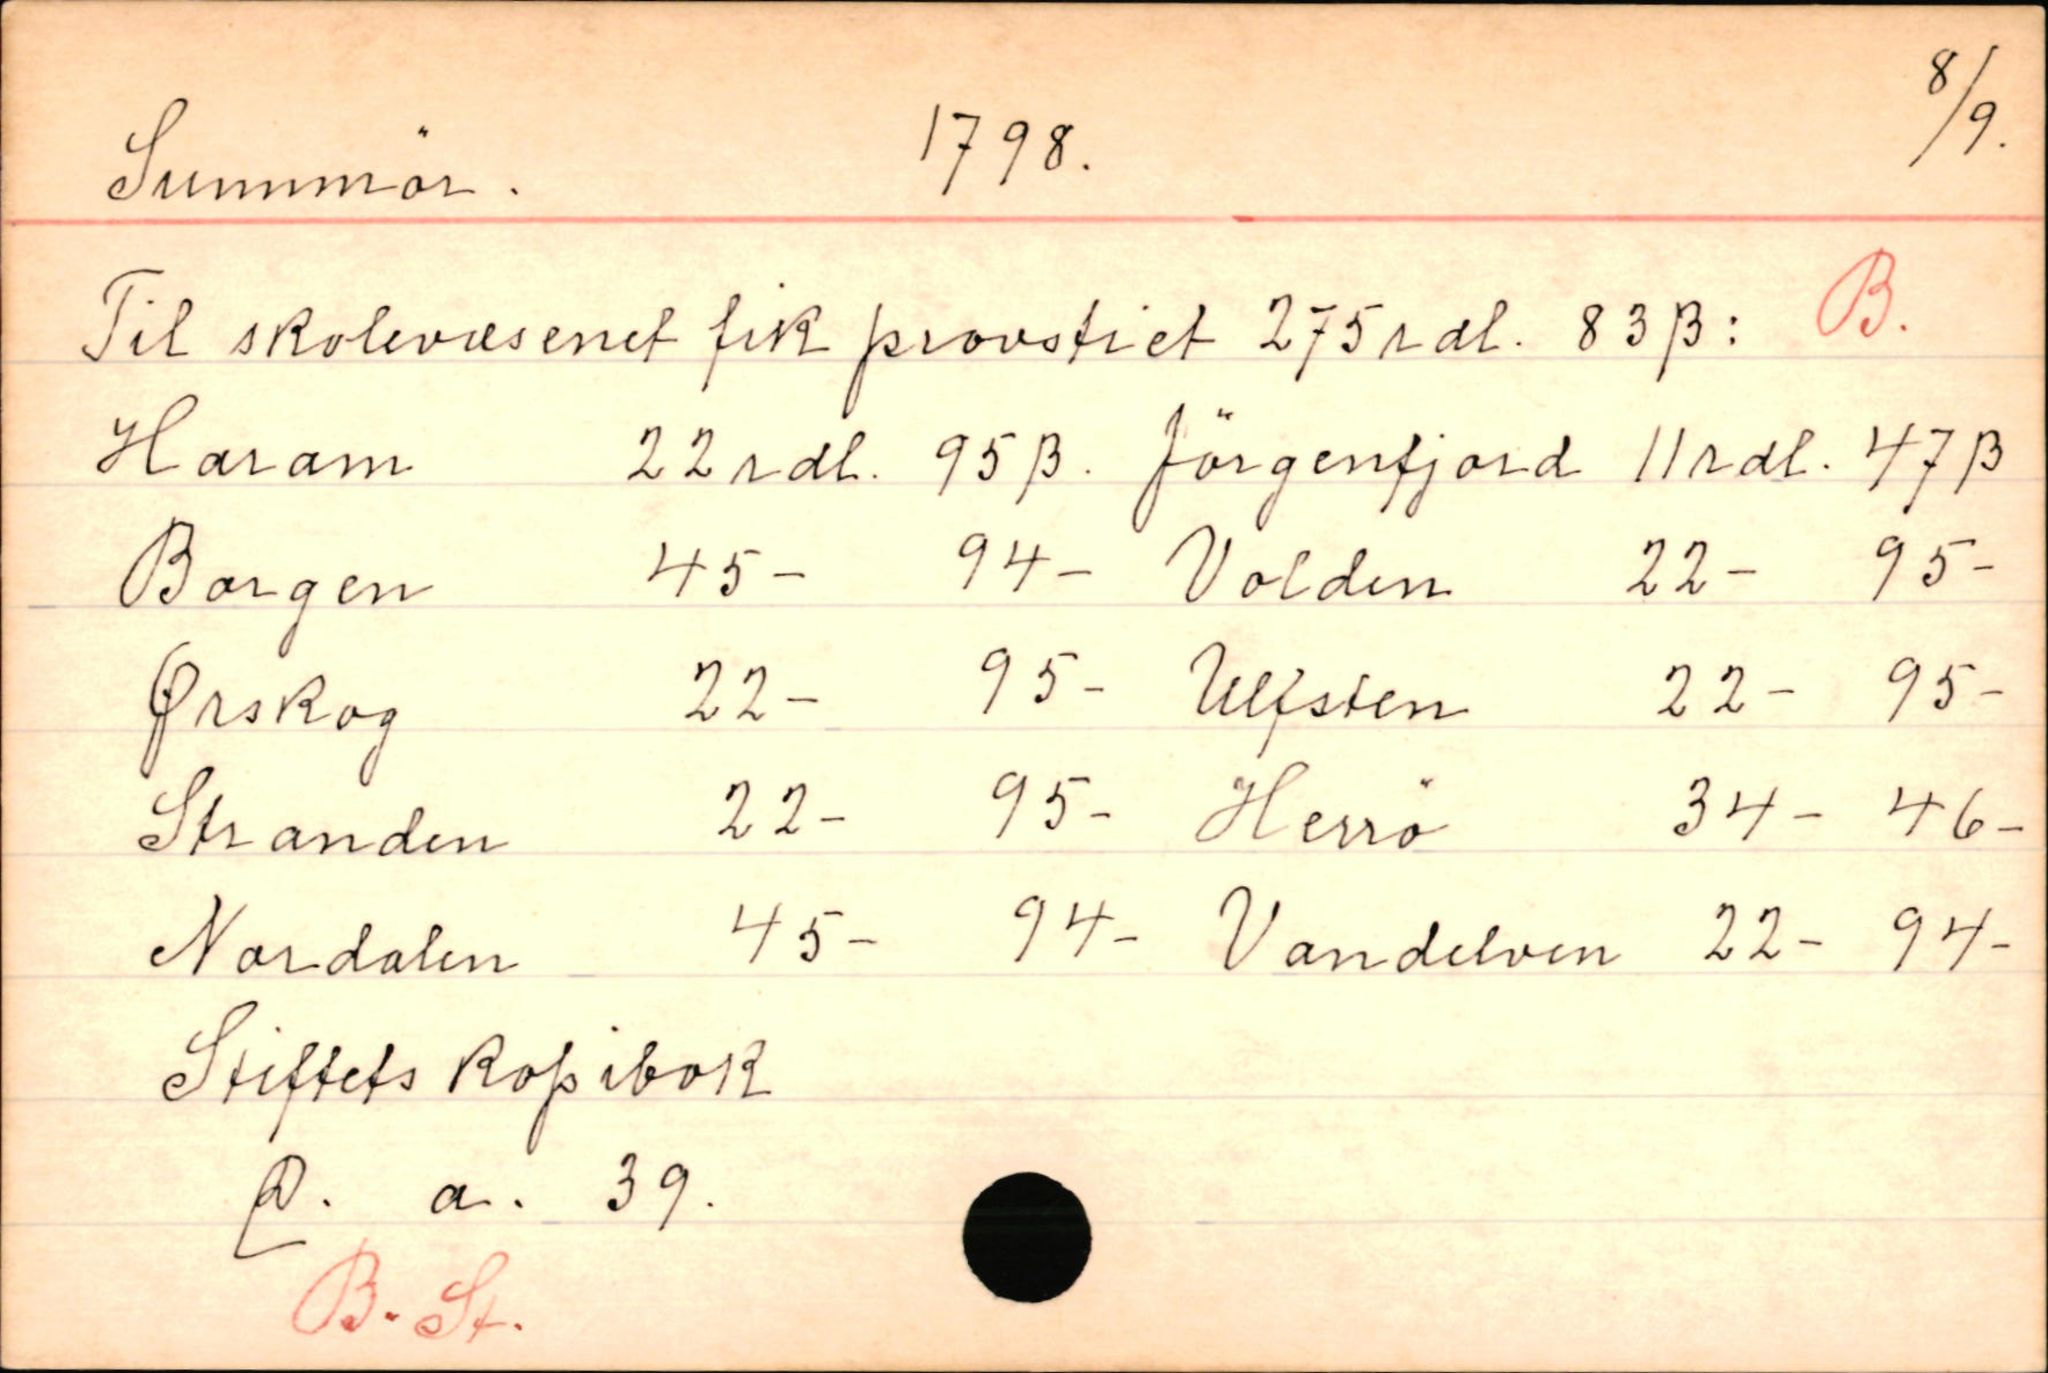 Sunnmör. 1798. 8/9.
Til skolevæsenet fik provstiet 275 rdl. 83 β: B.
Haram 22 rdl. 95 β. Jörgenfjord 11 rdl. 47 β
Borgen 45 - 94 - Volden 22 - 95 -
Ørskog 22 - 95 - Ulfsten 22 - 95 -
Stranden 22 - 95 - Herrö 34 - 46 -
Nordalen 45 - 94 - Vandelven 22 - 94 -
Stiftets kopibok
a. 39.
B. St.